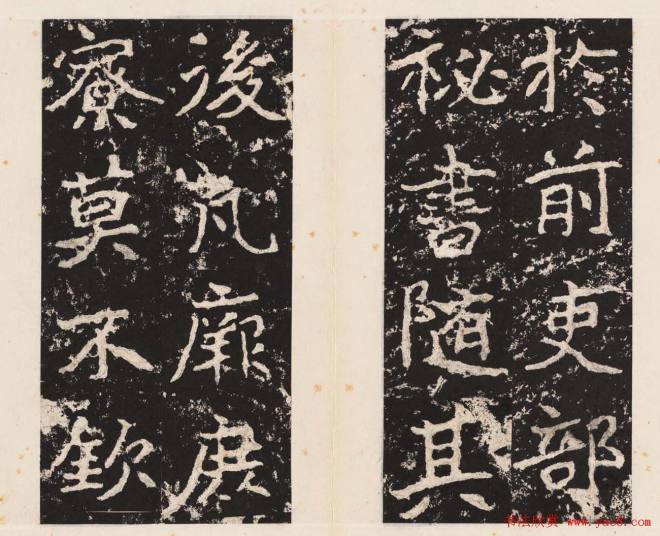 於前吏部
秘書隨其
後凡厥庶
寮莫不欽
书法欣赏 www.yac8.com